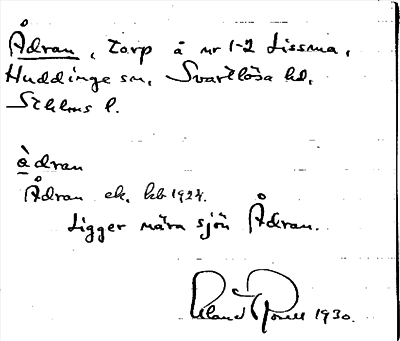 Ådran, Torp å nr 1-2 Lissma,
Huddinge sn, Svartlösa hd,
Sthlms l.
ådran
Ådran ek. kb 1924.
Ligger nära sjön Ådran.
1930.